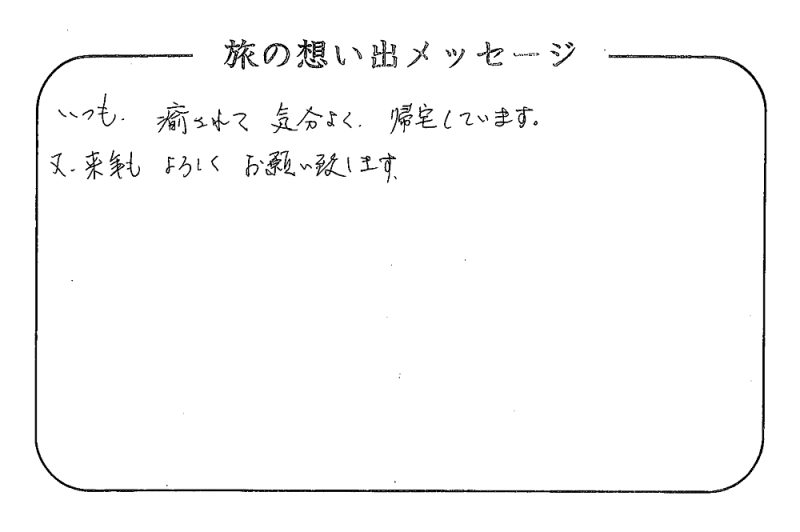 旅の想い出メッセージ
いつも、癒されて 気分よく、帰宅しています。
又、来年も よろしく お願い致します。